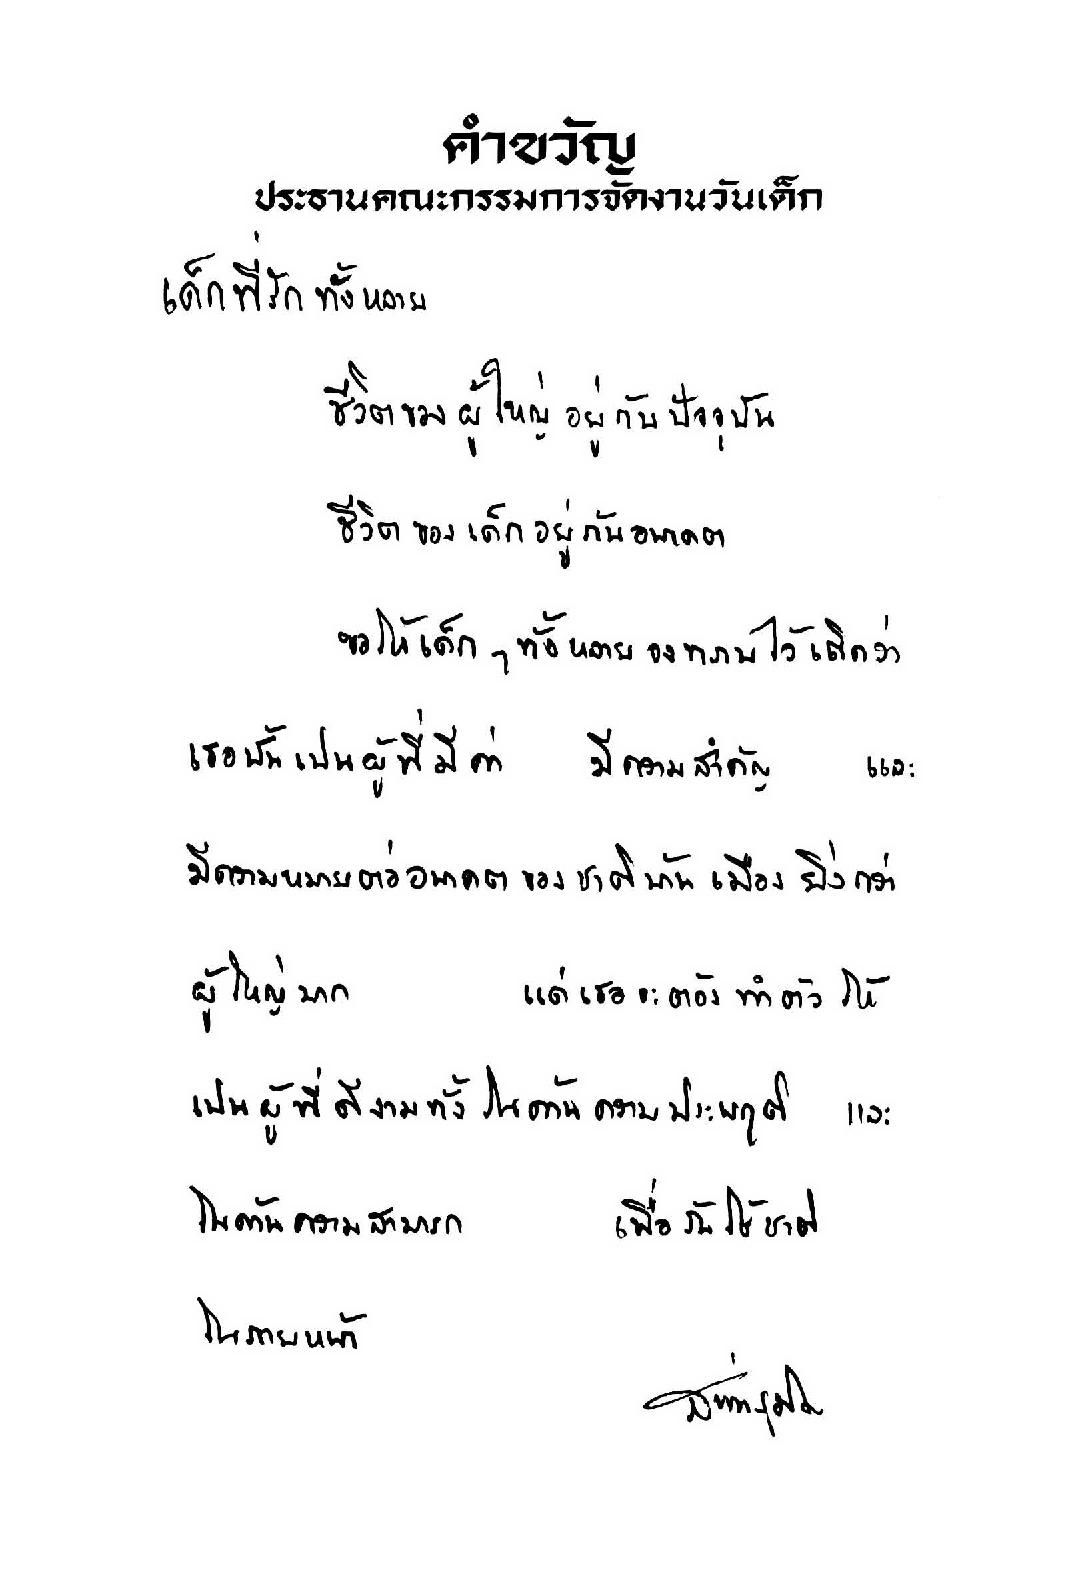 คำขวัญ
ประธานคณะกรรมการจัดงานวันเด็ก
เด็กที่รักทั้งหลาย
ชีวิตของผู้ใหญ่อยู่กับปัจจุบัน
ชีวิตของเด็กอยู่กับอนาคต
ขอให้เด็ก ๆ ทั้งหลายจงทราบไว้เถิดว่า
เธอนั้นเป็นผู้ที่มีค่า มีความสำคัญ และ
มีความหมายต่ออนาคตของชาติบ้านเมืองยิ่งกว่า
ผู้ใหญ่มาก แต่เธอจะต้องทำตัวให้
เป็นผู้ที่ดีงามทั้งในด้านความประพฤติ และ
ในด้านความสามารถ เพื่อรับใช้ชาติ
ในภายหน้า